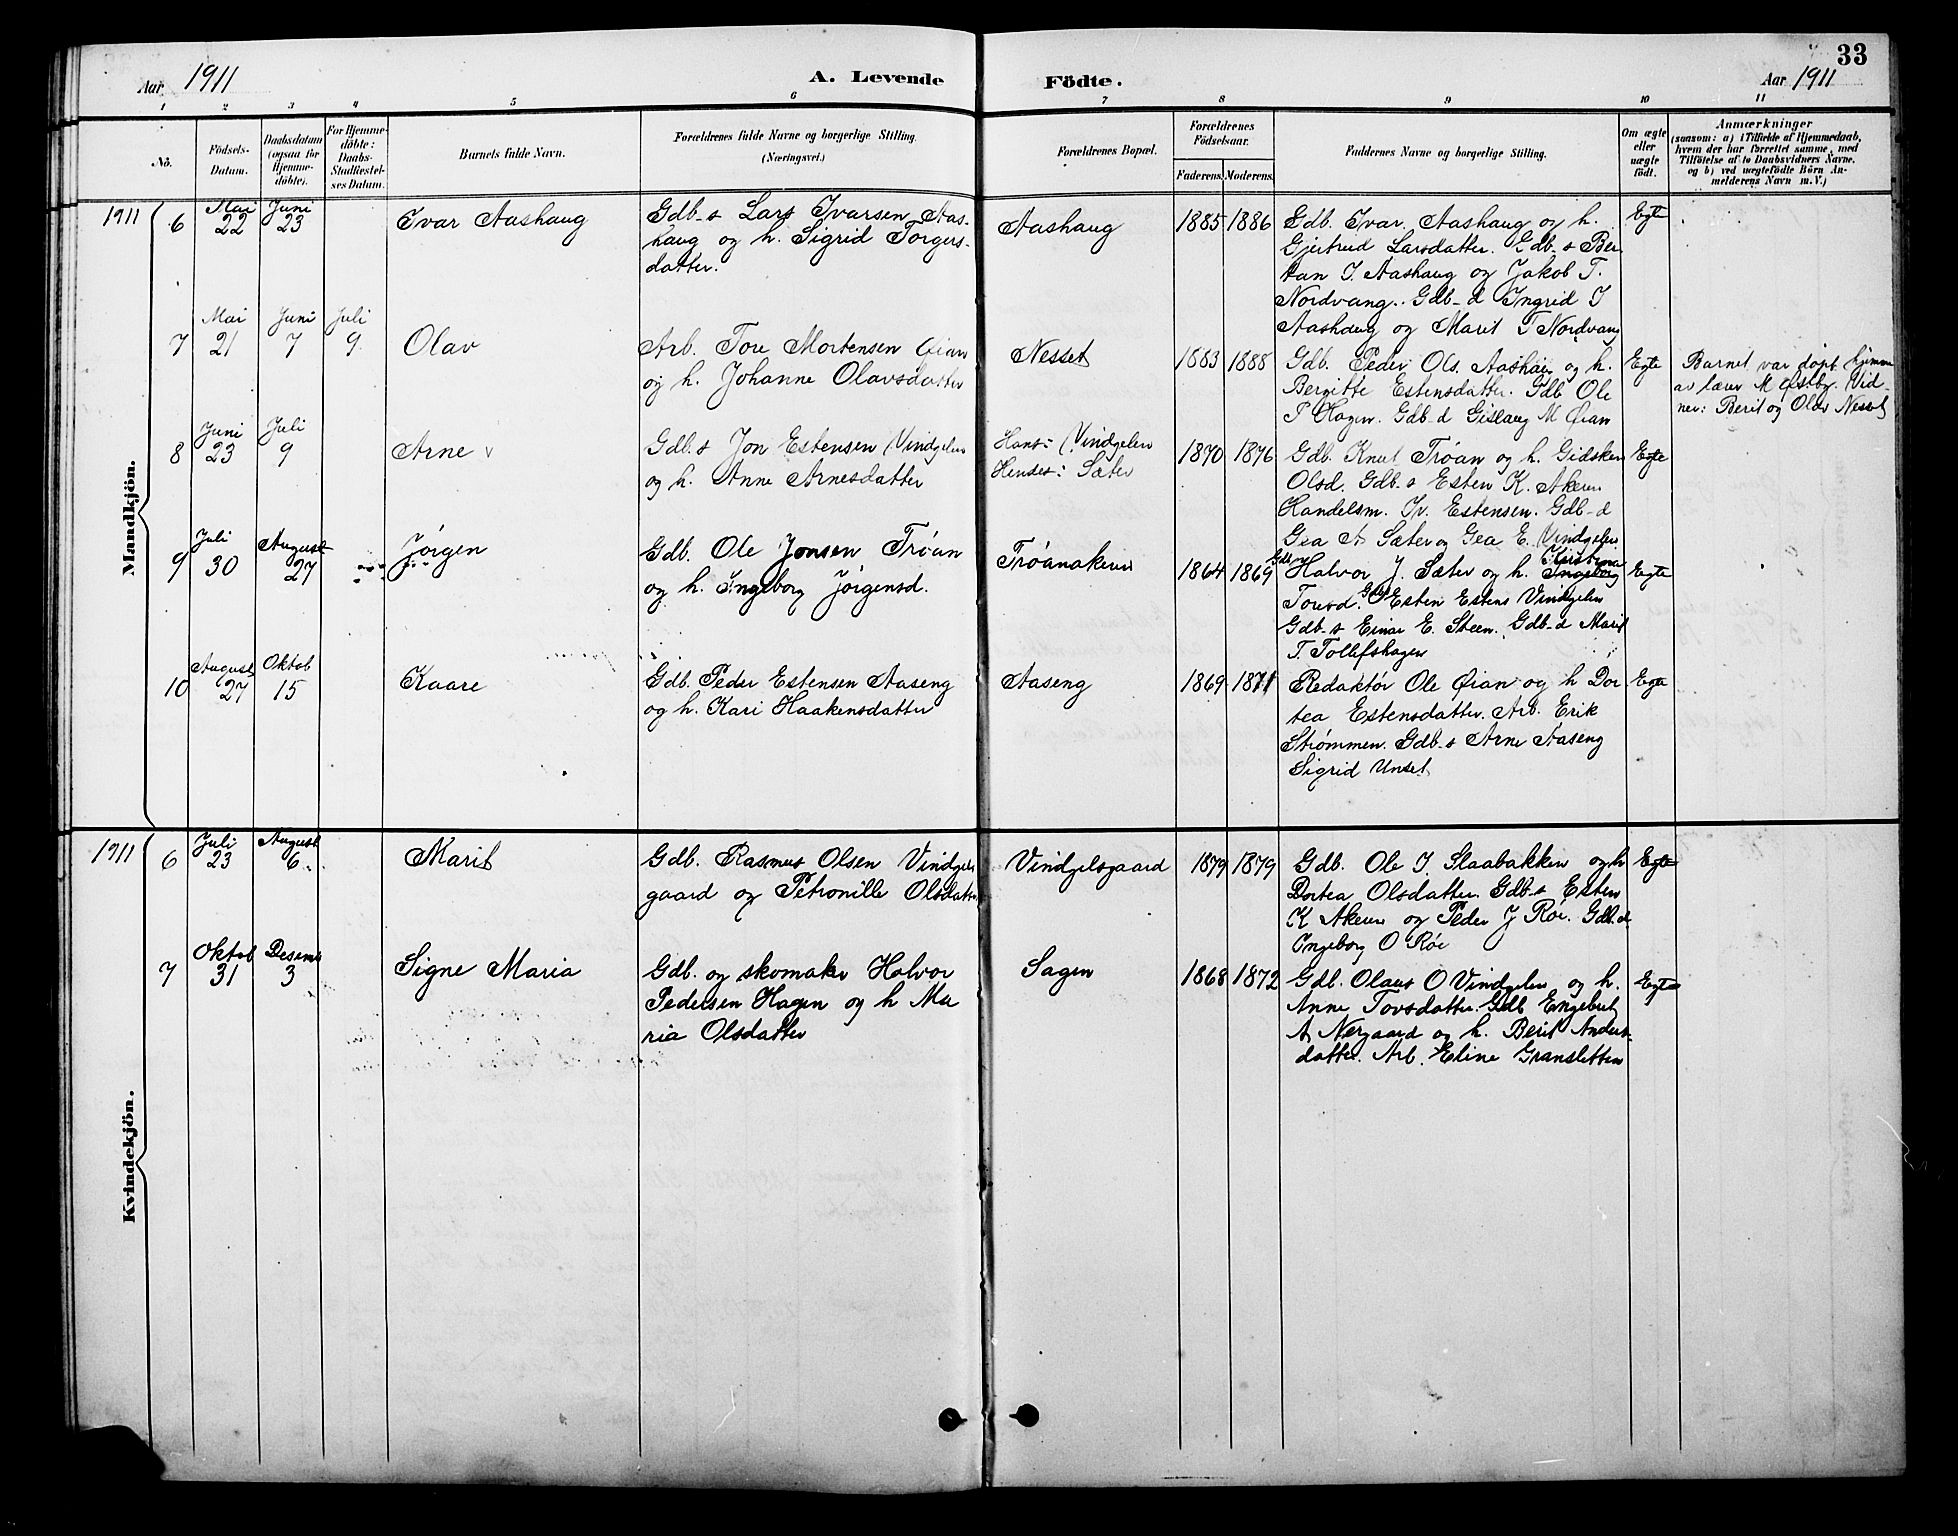 33
Aar 1911
A. Levende
Födte.
Aar 1911
1 2 3 4 5 6 7 8 9 10 11
Nô.
Födsels-
Datum.
Daabsdatum
(ogsaa for
Hjemme-
döbte).
For Hjemme-
döbte:
Daabs-
Stadfæstel-
ses Datum.
Barnets fulde Navn.
Forældrenes fulde Navne og borgerlige Stilling.
(Næringsvei.)
Forældrenes Bopæl.
Forældrenes
Födselsaar.
Faderens. Moderens.
Faddernes Navne og borgerlige Stilling.
Om ægte
eller
uægte
födt.
Anmærkninger
(saasom: a) i Tilfælde af Hjemmedaab,
hvem der har forrettet samme, med
Tilföielse af to Daabsvidners Navne,
og b) ved uægtefödte Börn An-
melderens Navn m. V.)
Mandkjön.
1911
6
Mai
22
Juni
23
Ivar Aashaug
Gdb-s Lars Ivarsen Aas-
haug og h. Sigrid Torgers-
datter.
Aashaug
1885 1886
Gdb. Ivar Aashaug og h.
Gjertrud Larsdatter. Gdb-s Ber
tan I. Aashaug og Jakob T.
Nordvang. Gdb-d Ingrid I
Aashaug og Marit T Nordvang
Egte
7
Mai
21
Juni
7
Juli
9
Olav
Arb. Tore Mortensen Øian
og h. Johanne Olavsdatter
Nesset
1883 1888
Gdb. Peder Ols. Aashaug og h.
Bergitte Estensdatter. Gdb Ole
P Hagen. Gdb-d Gislaug M Øian
Egte
Barnet var døpt hjemme
av lærer M Østby. Vid-
ner: Berit og Olav Nesset
8
Juni
23
Juli
9
Arne
Gdb.s Jon Estensen Vindgelen
og h. Anne Arnesdatter
Hans: Vindgelen
Hendes: Sæter
1870 1876
Gdb. Knut Trøan og h. Gidsken
Olsd. Gdb-s Esten K. Akeren
Handelsm. Iv. Estensen. Gdb-d
Gea A Sæter og Gea E. Vindgelen
Egte
9
Juli
30
August
27
Jørgen
Gdb. Ole Jonsen Trøan
og h. Ingeborg Jørgensd.
Trøanakeren
1864 1869
Gdb. Halvor J. Sæter og h. Kristina Ingeborg
Toresd. Gdb-s Esten Estens Vindgelen
Gdb-s Einar E. Steen. Gdb-d Marit
T. Tollefshagen
Egte
10
August
27
Oktob
15
Kaare
Gdb. Peder Estensen Aaseng
og h. Kari Haakensdatter
Aaseng
1869 1871
Redaktør Ole Øian og h Dor
tea Estensdatter. Arb. Erik
Strømmen. Gdb-s Arne Aaseng
Sigrid Unset
Egte
Kvindekjön.
1911
6
Juli
23
August
6.
Marit
Gdb. Rasmus Olsen Vindgels
gaard og Petronille Olsdatter
Vindgelsgaard
1879 1879
Gdb. Ole J. Slaabakken og h
Dortea Olsdatter. Gdb-s Esten
K Akeren og Peder J Røe. Gdb.d
Ingeborg O Røe
Egte
7
Oktob
31
Desemb
3
Signe Maria
Gdb. og skomaker Halvor
Pedersen Hagen og h Ma
ria Olsdatter
Sagen
1868 1872
Gdb. Olaus O Vindgelen og h.
Anne Torsdatter. Gdb Engebret
A Nergaard og h. Berit Anders-
datter. Arb. Eline Gransletten
Egte